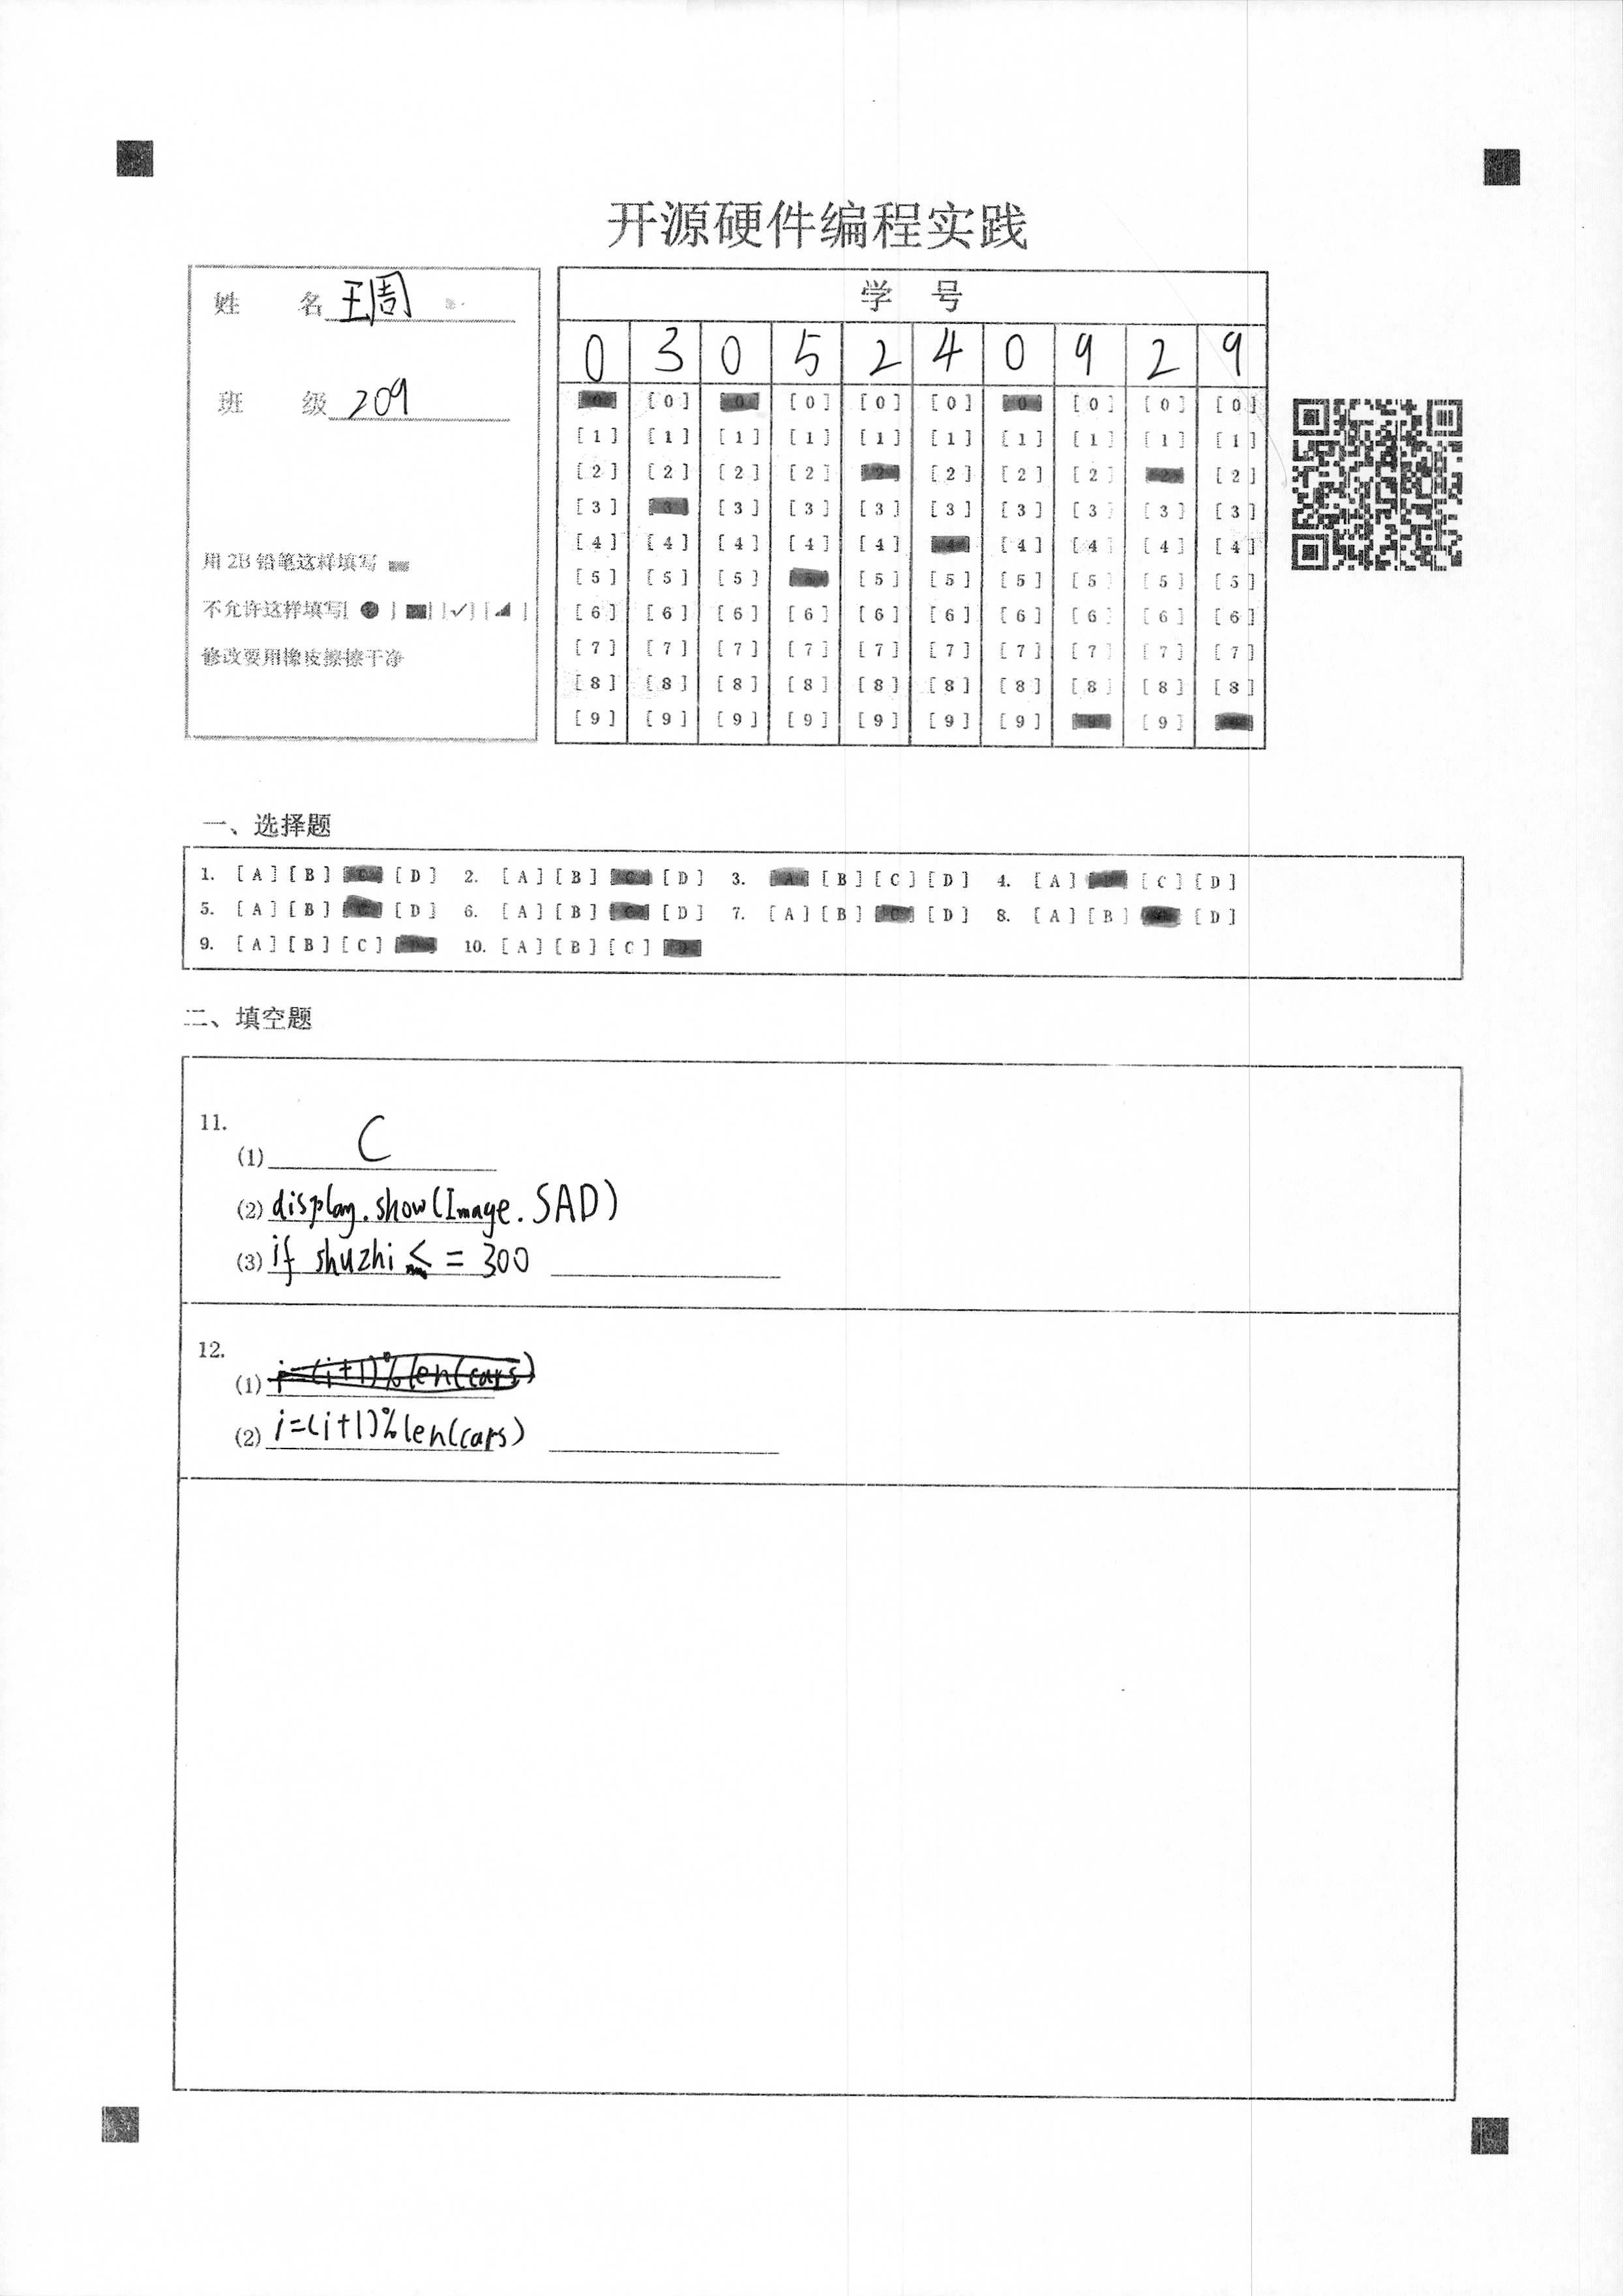 开源硬件编程实践
姓 名 王周
班 级 209
用 2B 铅笔这样填写
不允许这样填写[ ● ] [■] [✓] [◢ ]
修改要用橡皮擦擦干净
学 号
0 3 0 5 2 4 0 9 2 9
[0] [0] [0] [0] [0] [0] [0] [0] [0] [0]
[1] [1] [1] [1] [1] [1] [1] [1] [1] [1]
[2] [2] [2] [2] [2] [2] [2] [2] [2] [2]
[3] [3] [3] [3] [3] [3] [3] [3] [3] [3]
[4] [4] [4] [4] [4] [4] [4] [4] [4] [4]
[5] [5] [5] [5] [5] [5] [5] [5] [5] [5]
[6] [6] [6] [6] [6] [6] [6] [6] [6] [6]
[7] [7] [7] [7] [7] [7] [7] [7] [7] [7]
[8] [8] [8] [8] [8] [8] [8] [8] [8] [8]
[9] [9] [9] [9] [9] [9] [9] [9] [9] [9]
一、选择题
1. [A] [B] [C] [D] 2. [A] [B] [C] [D] 3. [A] [B] [C] [D] 4. [A] [B] [C] [D]
5. [A] [B] [C] [D] 6. [A] [B] [C] [D] 7. [A] [B] [C] [D] 8. [A] [B] [C] [D]
9. [A] [B] [C] [D] 10. [A] [B] [C] [D]
二、填空题
11.
(1) C
(2) display.show(Image.SAD)
(3) if shuzhi <= 300
12.
(1) i=(i+1)%len(cars)
(2) i=(i+1)%len(cars)